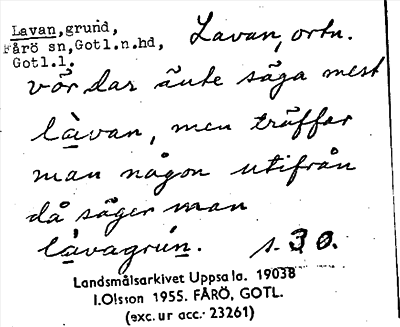 Lavan,grund,
Fårö sn,Gotl.n.hd,
Gotl.l.
Lavan, ortn.
vör dar äute säga mest
låvan, men träffar
man någon utifrån
då säger man
låvagrún. s. 30.
Landsmålsarkivet Uppsala. 19038
I.Olsson 1955. FÅRÖ, GOTL.
(exc. ur acc. 23261)